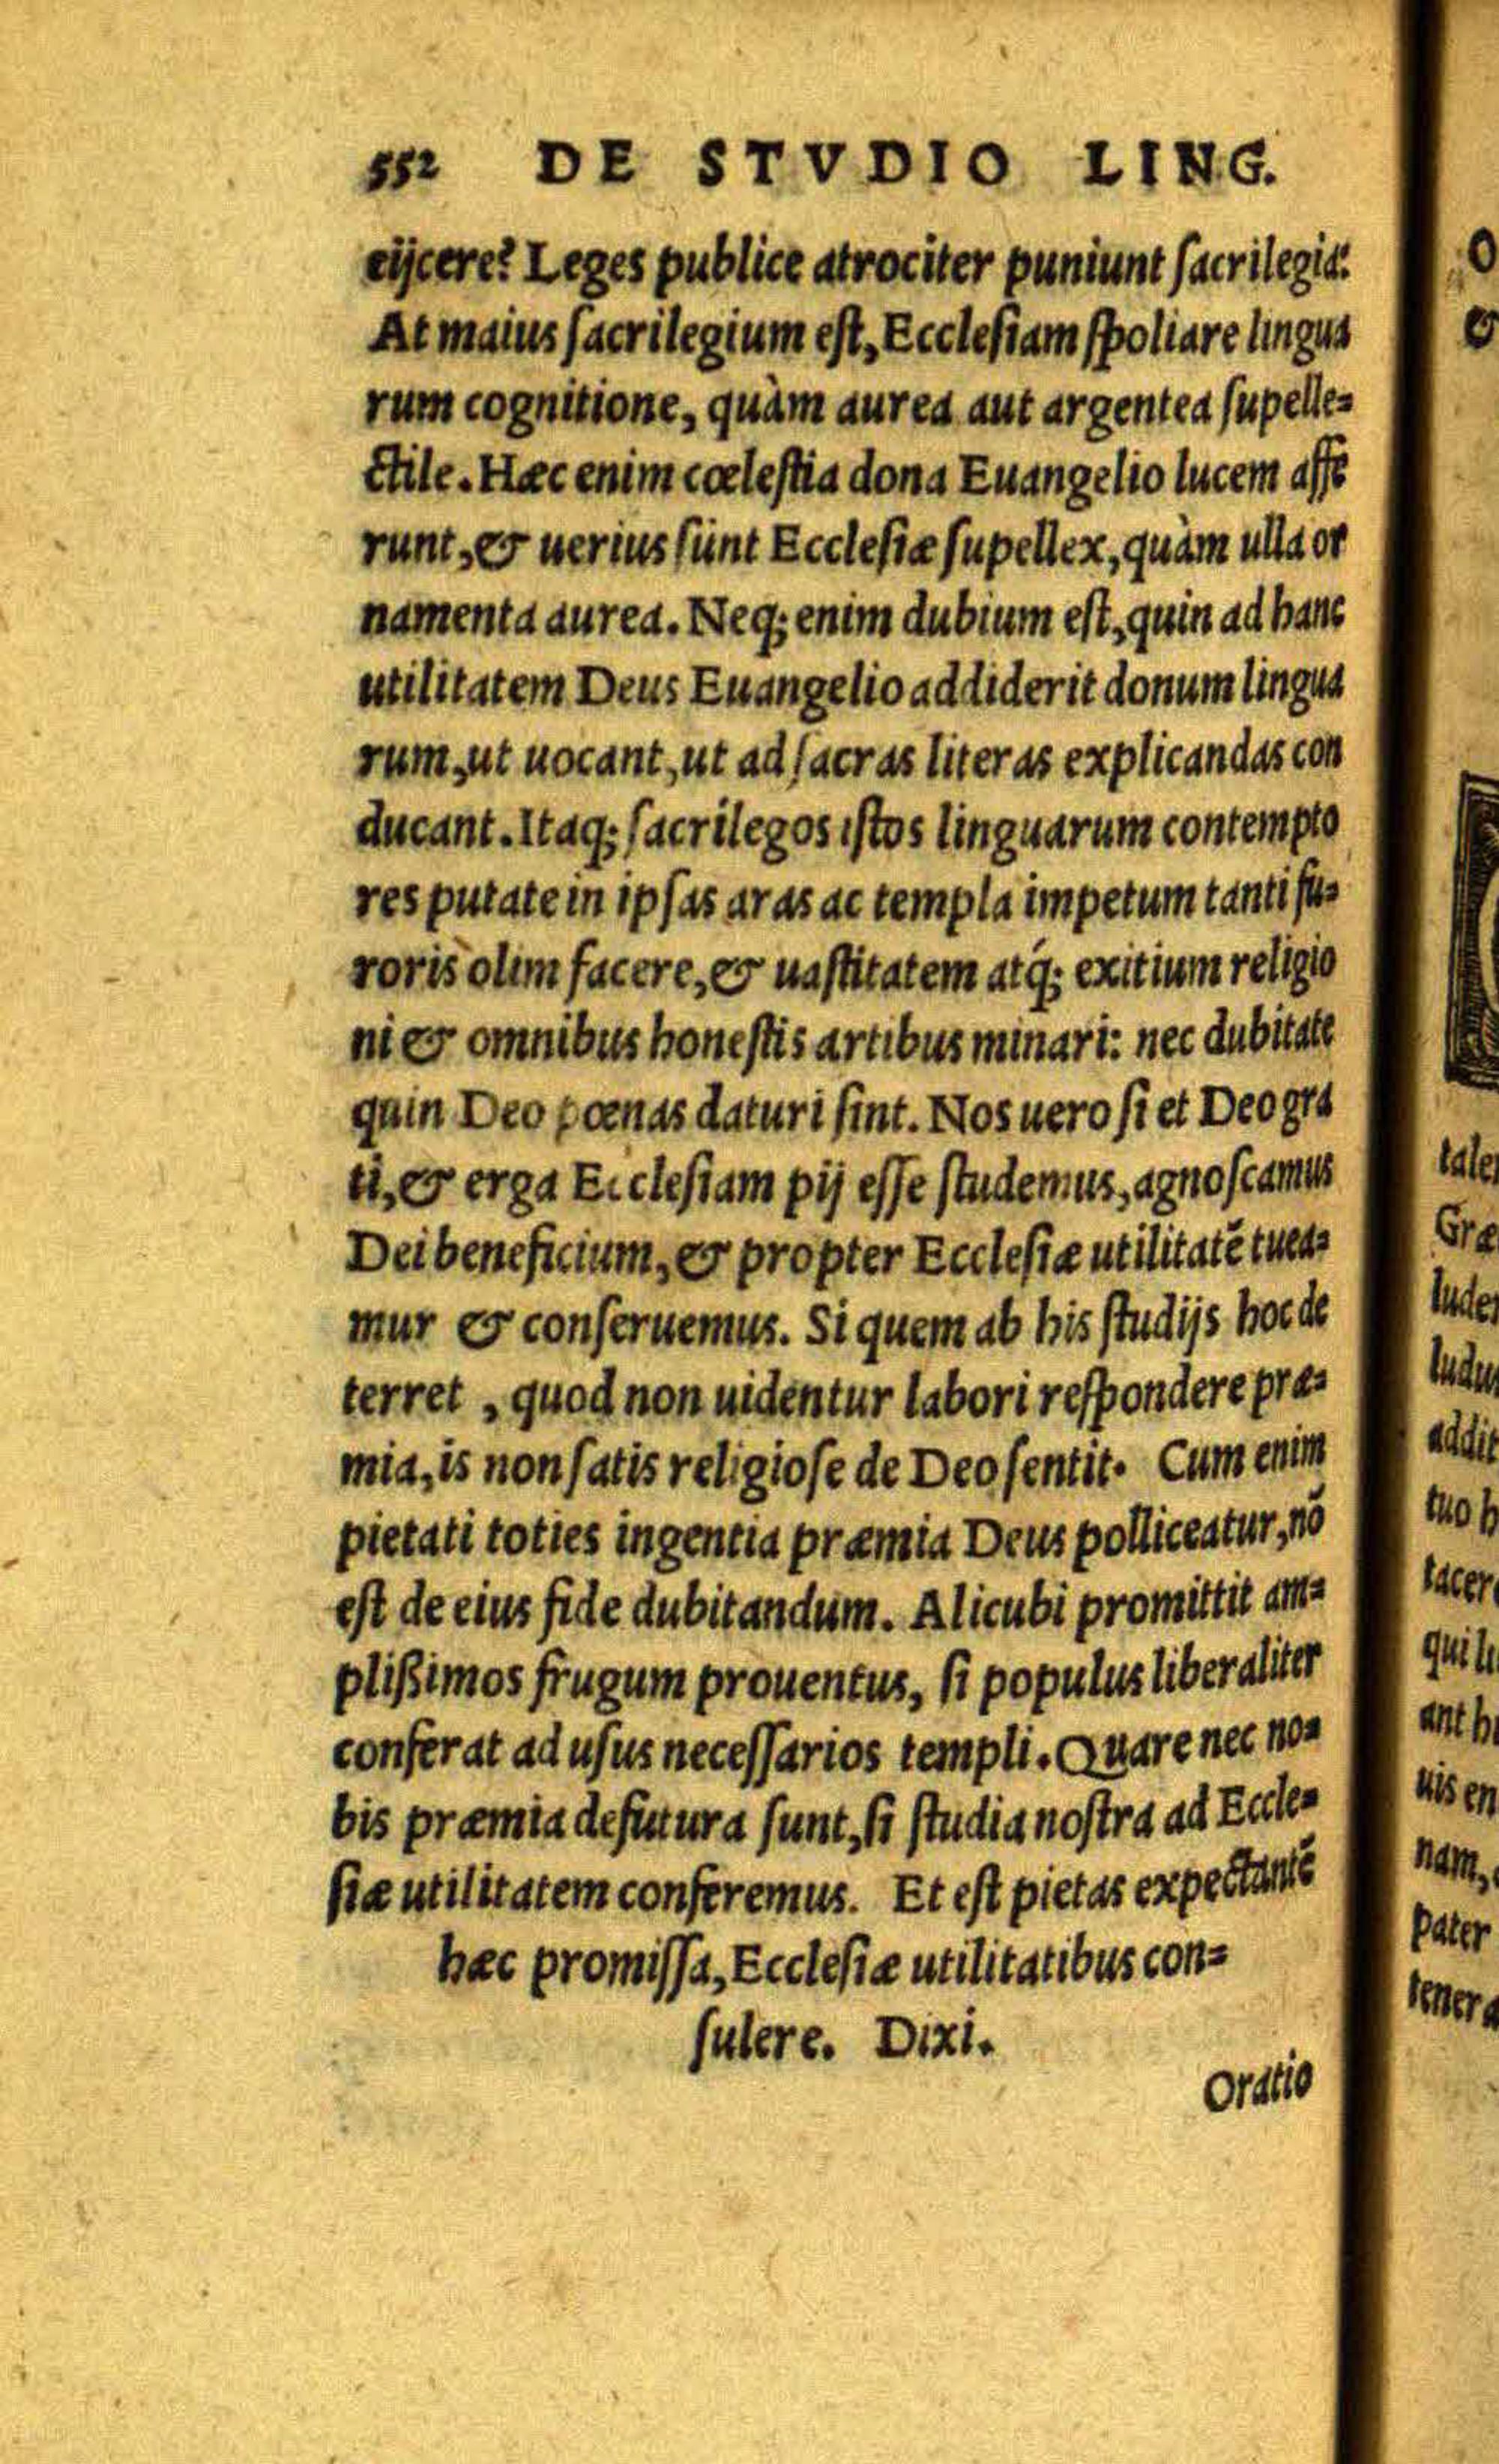 552 DE STVDIO LING.
eijcere? Leges publice atrociter puniunt sacrilegia:
At maius sacrilegium est, Ecclesiam spoliare lingua
rum cognitione, quàm aurea aut argentea supelle=
ctile. Hæc enim cœlestia dona Euangelio lucem affe
runt, & uerius sunt Ecclesiæ supellex, quàm ulla or
namenta aurea. Neq; enim dubium est, quin ad hanc
utilitatem Deus Euangelio addiderit donum lingua
rum, ut uocant, ut ad sacras literas explicandas con
ducant. Itaq; sacrilegos istos linguarum contempto
res putate in ipsas aras ac templa impetum tanti fu=
roris olim facere, & uastitatem atq́; exitium religio
ni & omnibus honestis artibus minari: nec dubitate
quin Deo pœnas daturi sint. Nos uero si et Deo gra
ti, & erga Ecclesiam pij esse studemus, agnoscamus
Dei beneficium, & propter Ecclesiæ utilitatē tuea=
mur & conseruemus. Si quem ab his studijs hoc de
terret, quod non uidentur labori respondere præ=
mia, is non satis religiose de Deo sentit. Cum enim
pietati toties ingentia præmia Deus polliceatur, nō
est de eius fide dubitandum. Alicubi promittit am=
plißimos frugum prouentus, si populus liberaliter
conferat ad usus necessarios templi. Quare nec no=
bis præmia defutura sunt, si studia nostra ad Eccle=
siæ utilitatem conferemus. Et est pietas expectantē
hæc promissa, Ecclesiæ utilitatibus con=
sulere. Dixi.
Oratio
O
&
tale
Græ
lude
ludu
addit
tuo h
tacer
qui
ant h
uis en
nam,
pater
tener